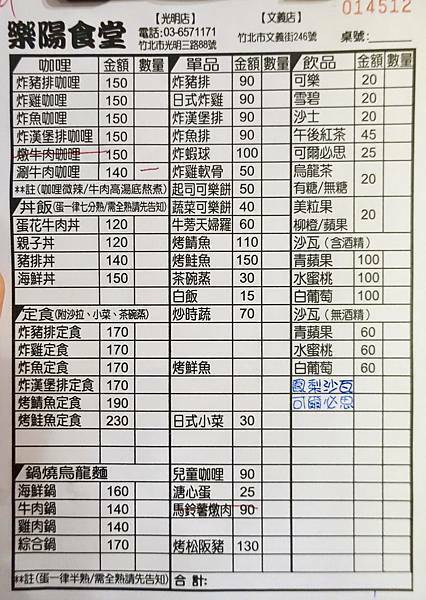 樂陽食堂
【光明店】
電話:03-6571171
竹北市光明三路88號
【文義店】
竹北市文義街246號
014512
桌號:
咖哩 金額 數量
炸豬排咖哩 150
炸雞咖哩 150
炸魚咖哩 150
炸漢堡排咖哩 150
燉牛肉咖哩 150
涮牛肉咖哩 140
**註(咖哩微辣/牛肉高湯底熬煮)
丼飯(蛋一律七分熟/需全熟請先告知)
蛋花牛肉丼 120
親子丼 120
豬排丼 140
海鮮丼 150
定食(附沙拉、小菜、茶碗蒸)
炸豬排定食 170
炸雞定食 170
炸魚定食 170
炸漢堡排定食 170
烤鯖魚定食 190
烤鮭魚定食 230
鍋燒烏龍麵
海鮮鍋 160
牛肉鍋 140
雞肉鍋 140
綜合鍋 170
**註(蛋一律半熟/需全熟請先告知)
單品 金額 數量
炸豬排 90
日式炸雞 90
炸漢堡排 90
炸魚排 90
炸蝦球 100
炸雞軟骨 50
起司可樂餅 50
蔬菜可樂餅 40
牛蒡天婦羅 60
烤鯖魚 110
烤鮭魚 150
茶碗蒸 30
白飯 15
炒時蔬 70
烤鮮魚
日式小菜 30
兒童咖哩 90
溏心蛋 25
馬鈴薯燉肉 90
烤松阪豬 130
合計:
飲品 金額 數量
可樂 20
雪碧 20
沙士 20
午後紅茶 45
可爾必思 25
烏龍茶
有糖/無糖 20
美粒果
柳橙/蘋果 20
沙瓦(含酒精)
青蘋果 100
水蜜桃 100
白葡萄 100
沙瓦(無酒精)
青蘋果 60
水蜜桃 60
白葡萄 60
鳳梨沙瓦
可爾必思